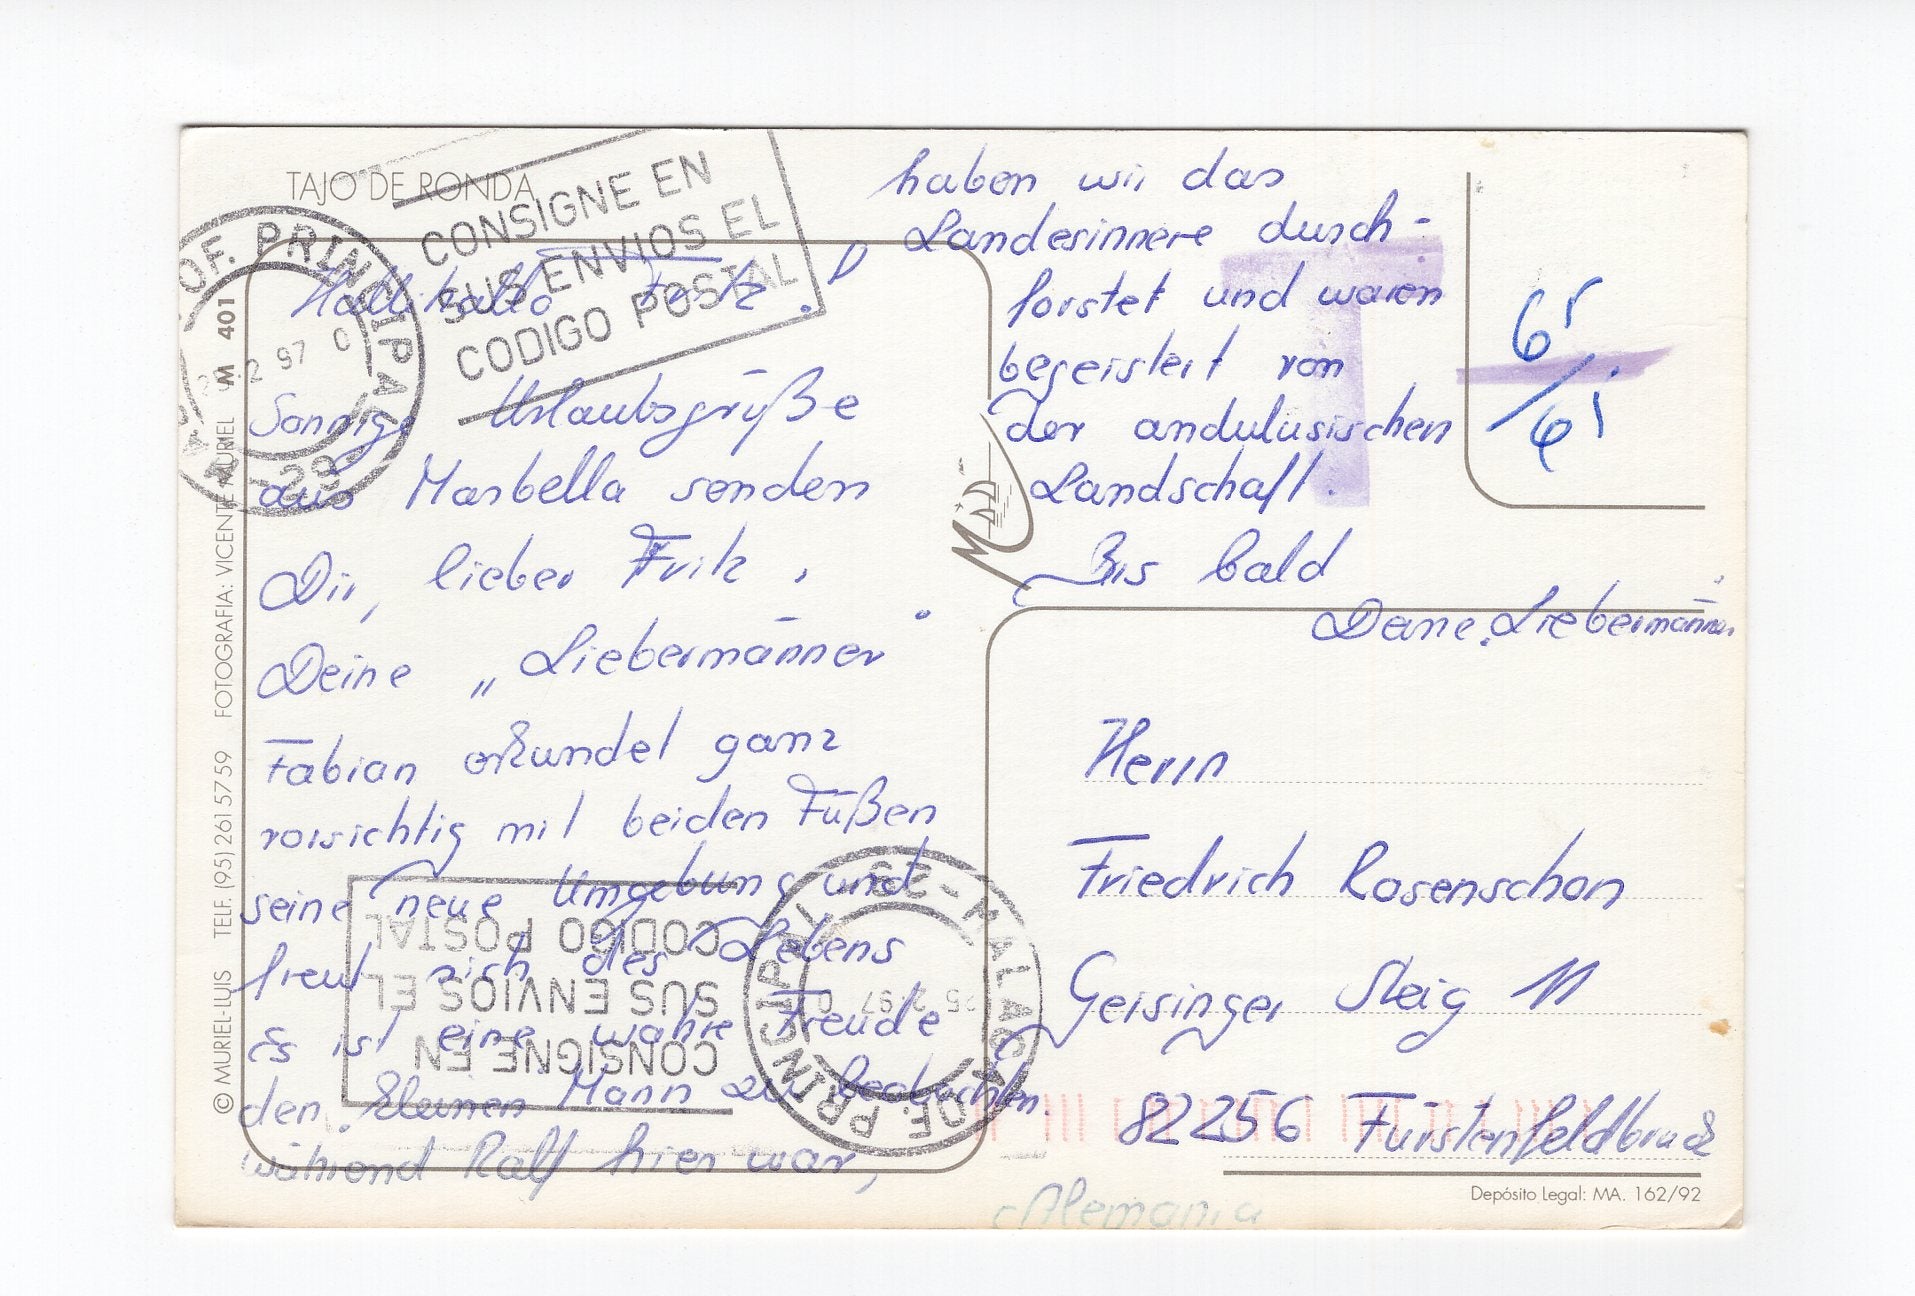 TAJO DE RONDA
CONSIGNE EN
SUS ENVIOS EL
CODIGO POSTAL
OF. PRINCIPAL
2 97
29
Hallihallo Fritz!
Sonnige Urlaubsgrüße
aus Marbella senden
Dir, lieber Fritz,
Deine „Liebermänner
Fabian erkundet ganz
vorsichtig mit beiden Füßen
seine neue Umgebung und
freut sich des Lebens
es ist eine wahre Freude
den kleinen Mann zu beobachten.
Während Ralf hier war,
haben wir das
Landesinnere durch-
forstet und waren
begeistert von
der andulusischen
Landschaft.
Bis bald
Deine Liebermänner
T
65
/
61
Herrn
Friedrich Rosenschon
Geisinger Steig 11
82256 Fürstenfeldbruck
Alemania
CONSIGNE EN
SUS ENVIOS EL
CODIGO POSTAL
OF. PRINCIPAL
29 - MALAGA
25 2 97
© MURIEL-LUIS TELF. (95) 261 57 59 FOTOGRAFIA: VICENTE MURIEL M 401
Depósito Legal: MA. 162/92